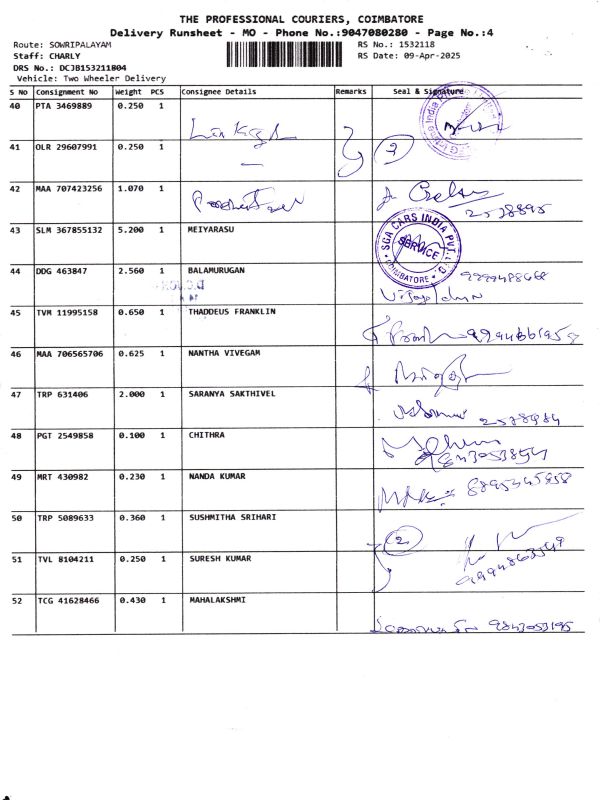 THE PROFESSIONAL COURIERS, COIMBATORE
Delivery Runsheet - MO - Phone No.:9047080280 - Page No.:4
Route: SOWRIPALAYAM RS No.: 1532118
Staff: CHARLY RS Date: 09-Apr-2025
DRS No.: DCJB153211804
Vehicle: Two Wheeler Delivery
S No Consignment No Weight PCS Consignee Details Remarks Seal & Signature
40 PTA 3469889 0.250 1
41 OLR 29607991 0.250 1 2
42 MAA 707423256 1.070 1
2578895
43 SLM 367855132 5.200 1 MEIYARASU
SGA CARS INDIA PVT. LTD. COIMBATORE SERVICE
44 DDG 463847 2.560 1 BALAMURUGAN
45 TVM 11995158 0.650 1 THADDEUS FRANKLIN
46 MAA 706565706 0.625 1 NANTHA VIVEGAM
47 TRP 631406 2.000 1 SARANYA SAKTHIVEL
2578984
48 PGT 2549858 0.100 1 CHITHRA
49 MRT 430982 0.230 1 NANDA KUMAR
50 TRP 5089633 0.360 1 SUSHMITHA SRIHARI 2
51 TVL 8104211 0.250 1 SURESH KUMAR
52 TCG 41628466 0.430 1 MAHALAKSHMI
9843053195